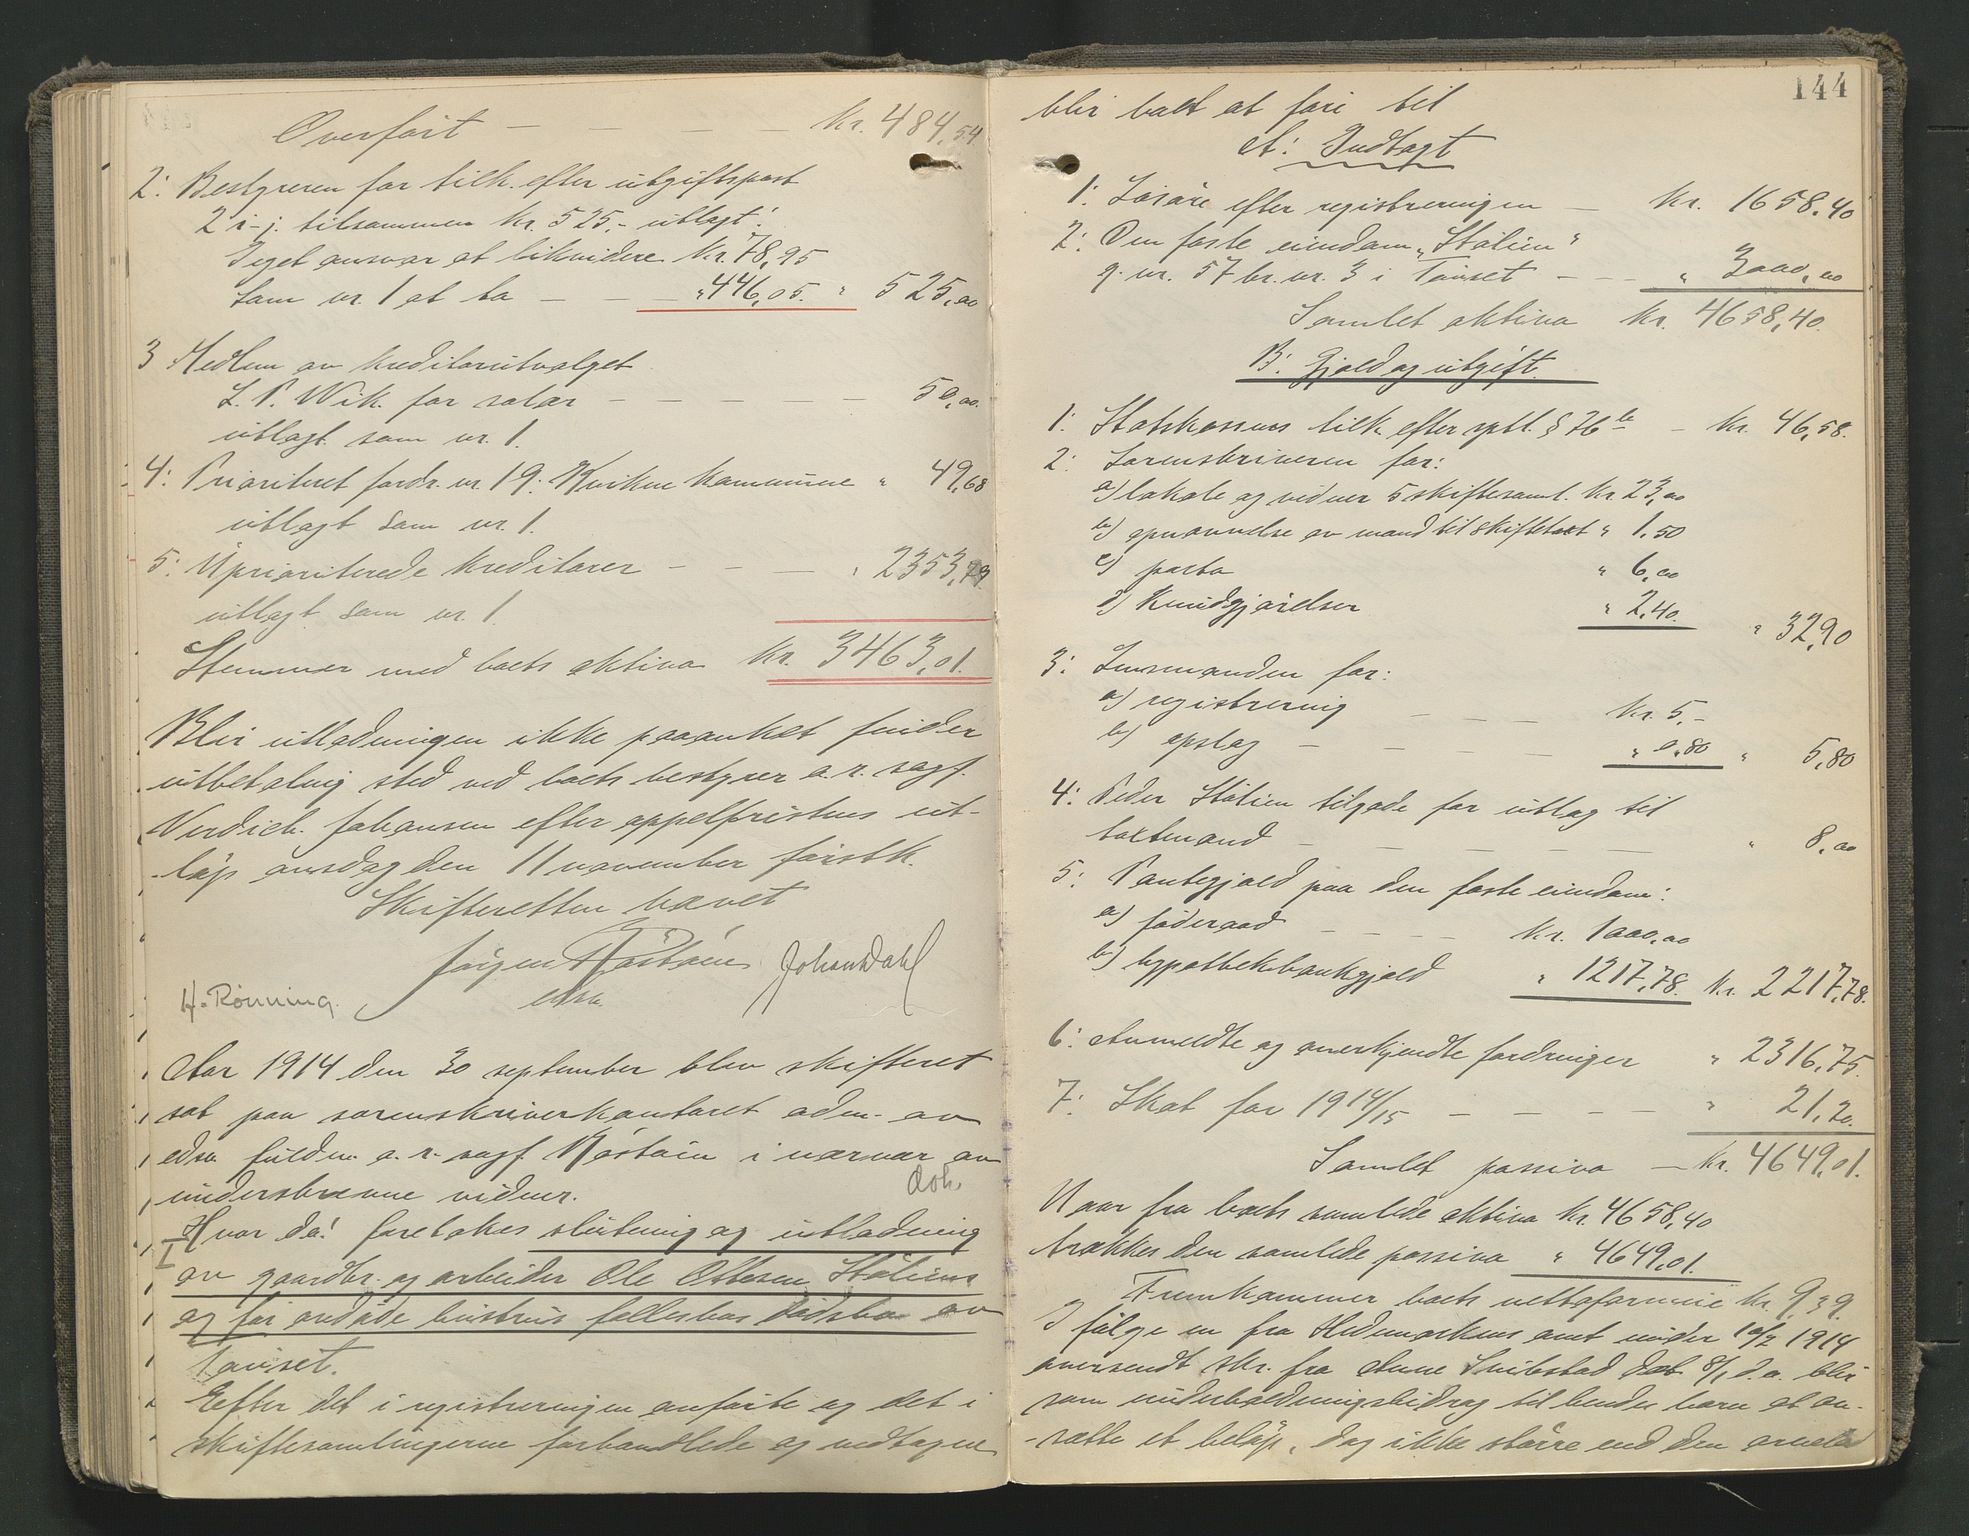 Overført — — — — — Kr. 484,54
2: Bestyreren for tilk. efter utgiftspost
2 i-j: tilsammen kr. 525,- utlagt:
Eget ansvar at likvidere Kr. 78,95
Som nr. 1 at ha — — " 446,05. " 525,00
3 Medlem av kreditorutvalget
L. P. Wik. for salær — — — — — 50,00.
utlagt som nr. 1.
4: Prioritert fordr. nr 19: Kvikne kommune " 49,68
utlagt som nr. 1.
5: Uprioriterede kreditorer — — — " 2353,79
utlagt som nr. 1.
Stemmer med boets aktiva Kr. 3463,01.
Blir utlodningen ikke paaanket finder
utbetaling sted ved boets bestyrer o.r. sagf.
Verdich. Johansen efter appelfristens ut-
løp onsdag den 11 november førstk.
Skifteretten hævet
Jørgen Røstøen Johan Dahl
H. Rønning. edsv.
Aar 1914 den 30 september blev skifteret
sat paa sorenskriverkontoret adm. av
edsv. fuldm. o.r. sagf. Røstøen i nærvær av
underskrevne vidner.
Hvor da! foretokes slutning og utlodning
I
av gaardbr. og arbeider Ole Ottesen Stølien
og før avdøde hustrus fællesbos dødsbo av
Tønset.
Efter det i registreringen anførte og det i
skiftesamlingerne forhandlede og vedtagne
144
blir boet at føre til
A: Indtægt
1: Løsøre efter registreringen — Kr. 1658,40
2: Den faste eiendom „Stølien"
g. nr. 57 br. nr. 3 i Tønset — — " 3000,00
Samlet aktiva Kr. 4658,40.
B: Gjæld og utgift.
1: Statskassens tilk. efter sptl. § 76 b — Kr. 46,58.
2: Sorenskriveren for:
a) lokale og vidner 5 skiftesaml. Kr. 23,00
b) opnævnelse av mænd til skiftetakst " 1,50
c) porto " 6,00
d) Kundgjørelser " 2,40. " 32,90
3: Lensmanden for:
a) registrering — — — Kr. 5,-
b) opslag — — — — " 0,80 " 5,80
4: Peder Stølien tilgode for utlæg til
takstmænd — — — — — — " 8,00
5: Pantegjæld paa den faste eiendom:
a) føderaad — — — — Kr. 1000,00
b) hypothekbankgjæld " 1217,78. Kr. 2217,78.
6: Anmeldte og anerkjendte fordringer " 2316,75.
7: Skat for 1914/15 — — — — " 21,20.
Samlet passiva — Kr. 4649,01.
Naar fra boets samlede aktiva Kr. 4658,40
trækkes den samlede passiva " 4649,01.
Fremkommer boets nettoformue Kr. 9,39.
I følge en fra Hedemarkens amt under 10/2 1914
oversendt skr. fra Anne dat 8/1 d.a. blir
som underholdningsbidrag til hendes barn at an-
-sætte et beløp, dog ikke større end den